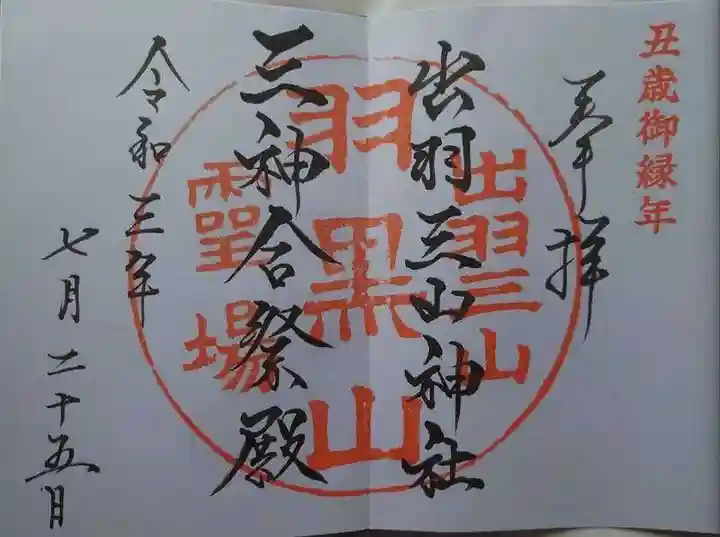 丑歳御縁年
奉拝
出羽三山神社
三神合祭殿
令和三年
七月二十五日
出羽三山
羽黒山
霊場